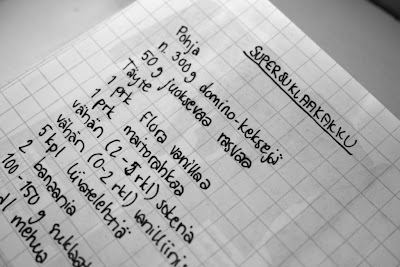 SUPERSUKLAAKAKKU
Pohja
n. 300g domino-keksejä
50g juoksevaa rasvaa
Täyte
1 prk flora vanillaa
1 prk maitorahkaa
vähän (2-5 rkl) sokeria
vähän (0-2 rkl) vanilliini
5 kpl liivatelehtiä
2 banaania
100-150 g suklaat
dl mehua